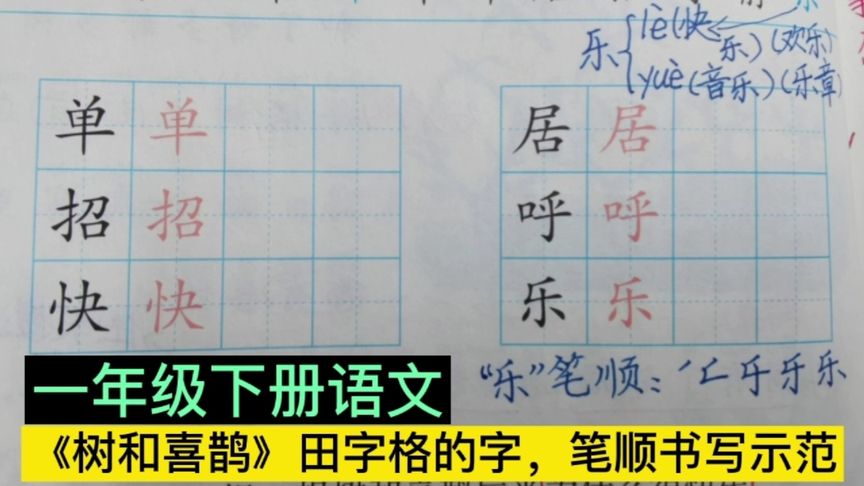 乐 lè(快乐)(欢乐)
yuè(音乐)(乐章)
单 单
招 招
快 快
居 居
呼 呼
乐 乐
“乐”笔顺:
一年级下册语文
《树和喜鹊》田字格的字，笔顺书写示范